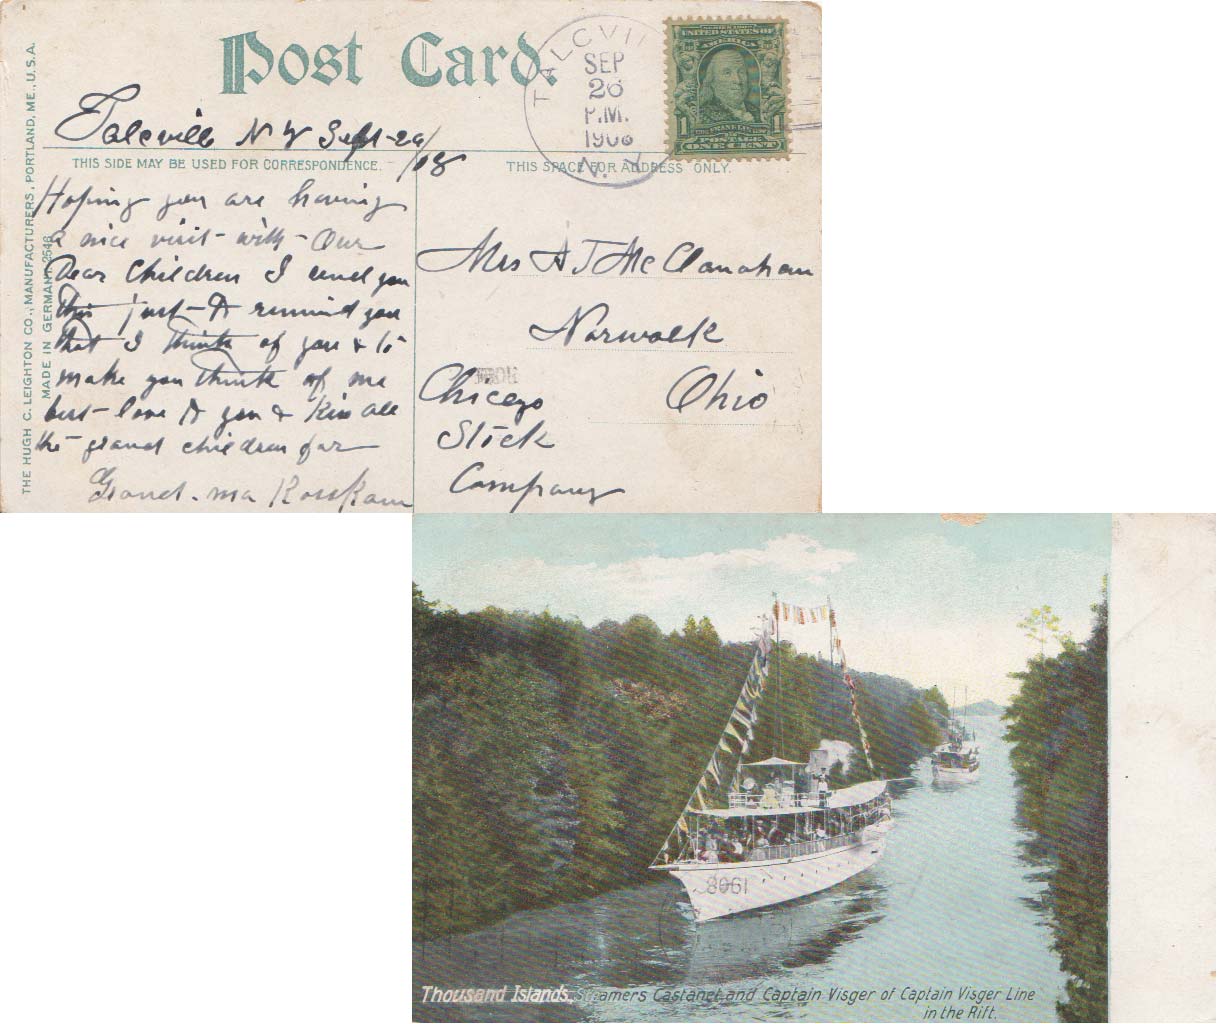 Post Card.
TALCVI
SEP
26
P.M.
1908
N.Y.
SERIES 1902
UNITED STATES OF
AMERICA
1
1
POSTAGE
ONE CENT
Talcville N Y Sept-26/08
THIS SIDE MAY BE USED FOR CORRESPONDENCE.
THIS SPACE FOR ADDRESS ONLY.
THE HUGH C. LEIGHTON CO., MANUFACTURERS, PORTLAND, ME., U.S.A.
MADE IN GERMANY 2548
Hoping you are having
a nice visit with Our
Dear Children I send you
this just to remind you
that I think of you & to
make you think of me
best love to you & Kiss all
the grand children for
Grand-ma Kouskam
Mrs A J McClanahan
Norwalk
Ohio
Chicago
Stick
Company
1908
Thousand Islands, Steamers Castanet and Captain Visger of Captain Visger Line
in the Rift.